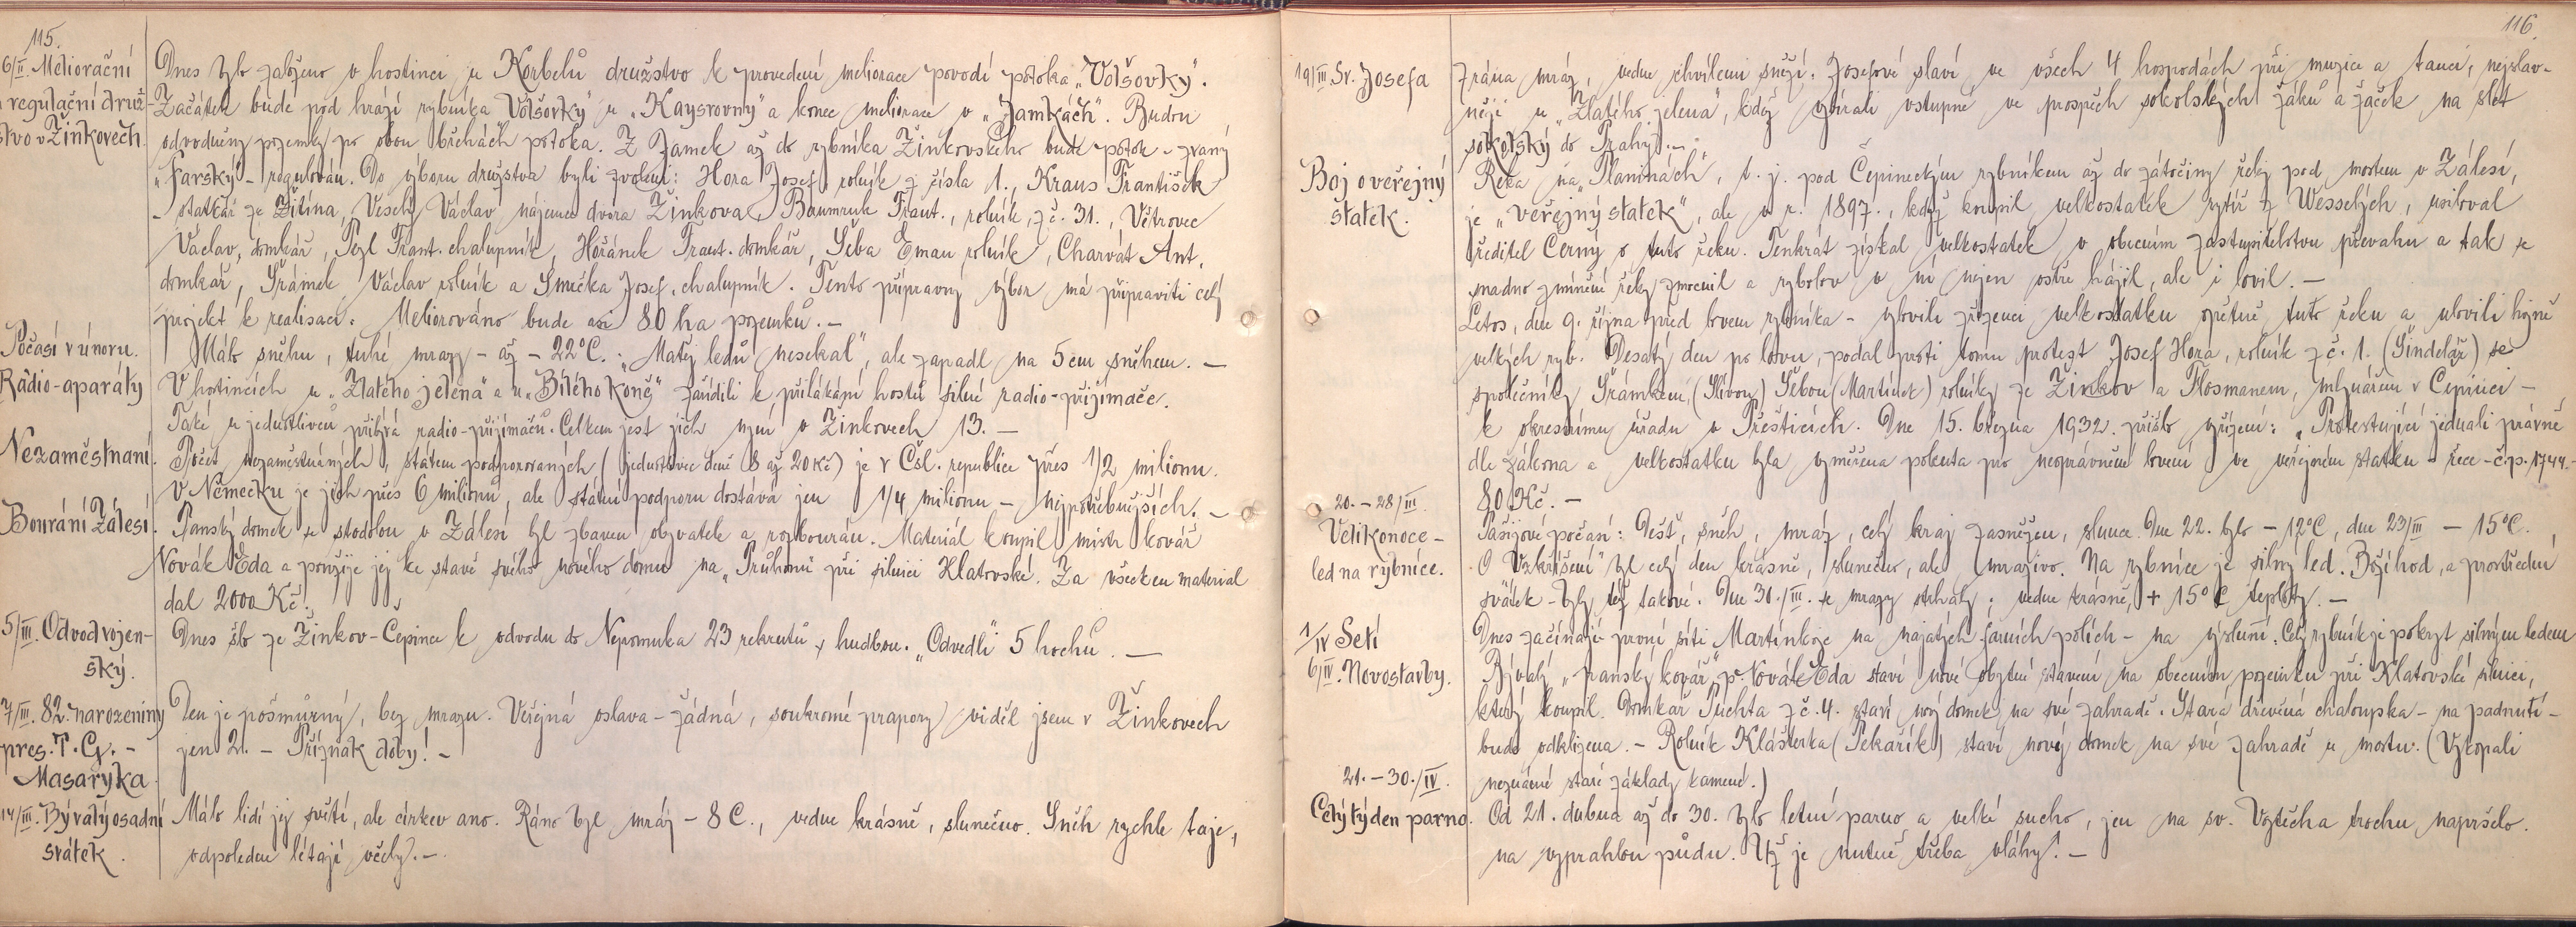 115.
6/II. Meliorační
regulační druž-
stvo v Žinkovech.
Dnes bylo založeno v hostinci u Korbelů družstvo k provedení meliorace povodí potoka „Volšovky".
Začátek bude pod hrází rybníka „Volšovky" u „Kaysrovny" a konec meliorace v „Jamkách". Budou
odvodněny pozemky po obou březích potoka. Z Jamek až do rybníka Žinkovského bude potok - zvaný
„Farský" - regulován. Do výboru družstva byli zvoleni: Hora Josef rolník z čísla 1., Kraus František
- statkář ze Žitína, Veselý Václav nájemce dvora Žinkova, Baumruk Frant., rolník, z č. 31., Větrovec
Václav, domkář, Pegl Frant. chalupník, Hořánek Frant. domkář, Šeba Eman rolník, Charvát Ant.
domkář, Šrámek Václav rolník a Smečka Josef, chalupník. Tento přípravný výbor má připraviti celý
projekt k realisaci. Meliorováno bude asi 80 ha pozemků. —
Počasí v únoru.
Málo sněhu, tuhé mrazy - až - 22°C. „Matěj ledů nesekal", ale zapadl na 5 cm sněhem. —
Radio-aparáty
V hostincích u „Zlatého jelena" a u „Bílého koně" zařídili k přilákání hostů silné radio-přijímače.
Také u jednotlivců přibývá radio-přijímačů. Celkem jest jich nyní v Žinkovech 13. —
Nezaměstnaní.
Počet nezaměstnaných, státem podporovaných (jednotlivec denně 8 až 20 Kč) je v Čsl. republice přes 1/2 milionu.
V Německu je jich přes 6 milionů, ale státní podporu dostává jen 1/4 milionu - nejpotřebnějších. —
Bourání Zálesí.
Panský domek se stodolou v Zálesí byl zbaven obyvatele a rozbourán. Materiál koupil mistr kovář
Novák Eda a použije jej ke stavě svého nového domu na „Průhonu" při silnici Klatovské. Za všecken material
dal 2000 Kč.
5/III. Odvod vojen-
ský.
Dnes šlo ze Žinkov-Čepince k odvodu do Nepomuka 23 rekrutů s hudbou. „Odvedli" 5 hochů. —
7/III. 82. narozeniny
pres. T. G. -
Masaryka
Den je pošmurný, bez mrazu. Veřejná oslava - žádná, soukromé prapory viděl jsem v Žinkovech
jen 2. - Příznak doby! -
14/III. Bývalý osadní
svátek.
Málo lidí jej světí, ale církev ano. Ráno byl mráz - 8 C., vedne krásně, slunečno. Sníh rychle taje,
odpoledne létají včely. —
116.
19/III Sv. Josefa
Zrána mráz, vedne chvílemi sněží. Josefové slaví ve všech 4 hospodách při muzice a tanci, nejslav-
něji u „Zlatého jelena", kdež vybírali vstupné ve prospěch sokolských žáků a žaček na slet
sokolský do Prahy. —
Boj o veřejný
statek.
Řeka na „Planinách", t. j. pod Čepineckým rybníkem až do zátočiny řeky pod mostem v Zálesí,
je „veřejný statek", ale v r. 1897., když koupil velkostatek rytíř z Wesselých, usiloval
ředitel Černý o tuto řeku. Tenkrát získal velkostatek v obecním zastupitelstvu převahu a tak se
snadno zmíněné řeky zmocnil a rybolov v ní nejen ostře hájil, ale i lovil. —
Letos, dne 9. října před lovem rybníka - vylovili zřízenci velkostatku opětně tuto řeku a ulovili hojně
velkých ryb. Desatý den po lovu, podal proti tomu protest Josef Hora, rolník z č. 1. (Šindelář) se
společníky Šrámkem, (Slívou) Šebou (Martínek) rolníky ze Žinkov a Flosmanem, mlynářem v Čepinci -
k okresnímu úřadu v Přešticích. Dne 15. března 1932. přišlo vyřízení: „Protestující jednali právně
dle zákona a velkostatku byla vyměřena pokuta pro neoprávněné lovení ve veřejném statku - řece - č.p. 1744. -
80 Kč. —
20. - 28/III.
Velikonoce -
led na rybníce.
Pašijové počasí: Déšť, sníh, mráz, celý kraj zasněžen, slunce. Dne 22. bylo - 12°C, dne 23/III - 15°C.
O „Vzkříšení" byl celý den krásně, slunečno, ale mrazivo. Na rybníce je silný led. Boží hod, a prostřední
svátek - byly též takové. Dne 30./III. se mrazy strhaly; vedne krásně, + 15°C teploty. —
1/IV Setí
Dnes začínají první síti Martínkoje na najatých farních polích - na výsluní. Celý rybník je pokryt silným ledem
6/IV. Novostavby.
Bývalý „panský kovář" p. Novák Eda staví nové obytné stavení na obecním pozemku při Klatovské silnici,
který koupil. Domkář Puchta z č. 4. staví nový domek na své zahradě. Stará dřevěná chaloupka - na padnutí -
bude odklizena. - Rolník Klášterka (Pekařík) staví nový domek na své zahradě u mostu. (Vykopali
neznámé staré základy kamené.)
21. - 30./IV.
Celý týden parno.
Od 21. dubna až do 30. bylo letní parno a velké sucho, jen na sv. Vojtěcha trochu napršelo.
na vyprahlou půdu. Už je nutně třeba vláhy. —